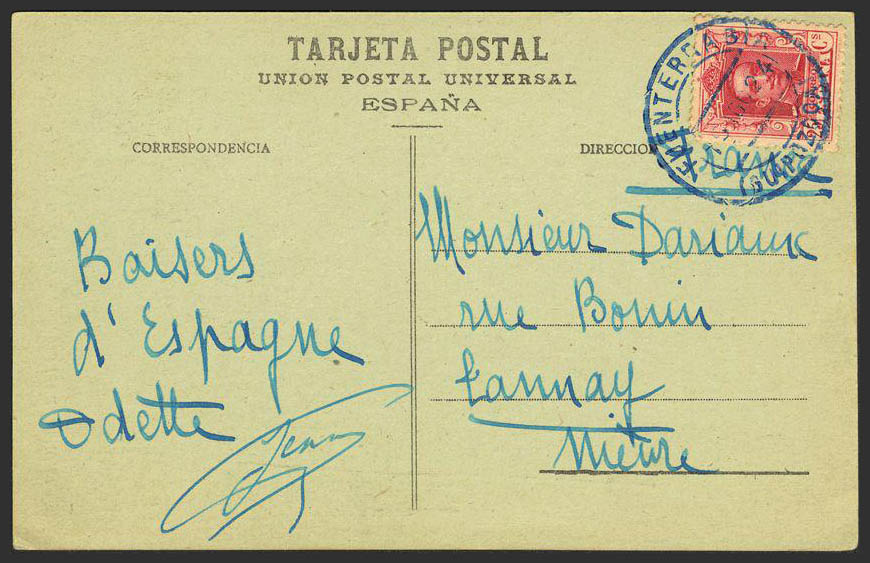 TARJETA POSTAL
UNION POSTAL UNIVERSAL
ESPAÑA
CORRESPONDENCIA
DIRECCION
FUENTERRABIA
(GUIPUZCOA)
24
Cs
France
Baisers
d'Espagne
Odette
Monsieur Dariaux
rue Bonin
Tannay
Nièvre